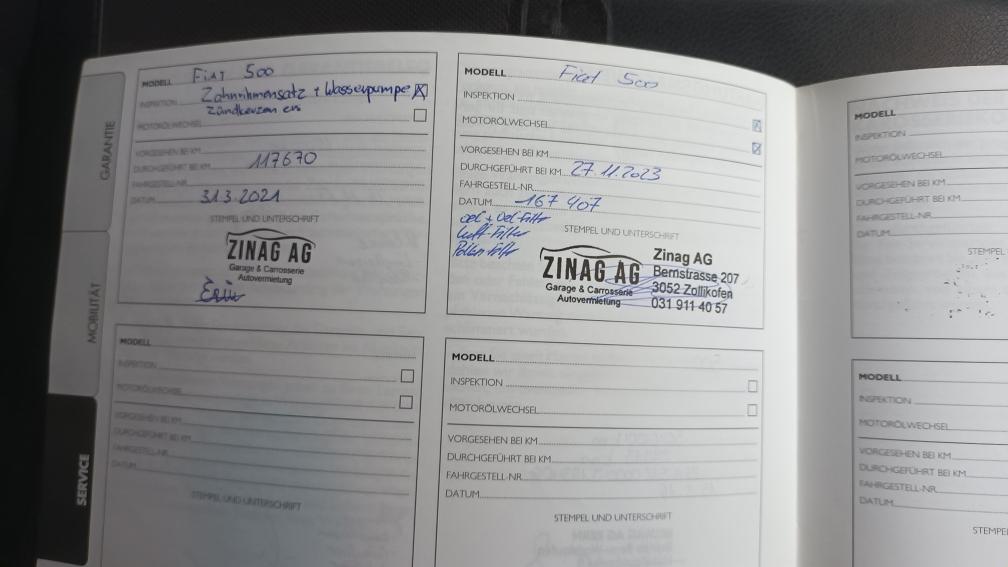 GARANTIE
MOBILITÄT
SERVICE
MODELL Fiat 500
Zahnrihmensatz + Wasserpumpe
INSPEKTION
Zündkerzen ers
MOTORÖLWECHSEL
VORGESEHEN BEI KM
DURCHGEFÜHRT BEI KM 117670
FAHRGESTELL-NR.
DATUM 31.3.2021
STEMPEL UND UNTERSCHRIFT
ZINAG AG
Garage & Carrosserie
Autovermietung
MODELL Fiat 500
INSPEKTION
MOTORÖLWECHSEL
VORGESEHEN BEI KM
DURCHGEFÜHRT BEI KM 27.11.2023
FAHRGESTELL-NR.
DATUM 167 407
oel + Oel-Filter
Luft-Filter
Pollen Filter
STEMPEL UND UNTERSCHRIFT
ZINAG AG
Garage & Carrosserie
Autovermietung
Zinag AG
Bernstrasse 207
3052 Zollikofen
031 911 40 57
MODELL
INSPEKTION
MOTORÖLWECHSEL
VORGESEHEN BEI KM
DURCHGEFÜHRT BEI KM
FAHRGESTELL-NR.
DATUM
STEMPEL
MODELL
INSPEKTION
MOTORÖLWECHSEL
VORGESEHEN BEI KM
DURCHGEFÜHRT BEI KM
FAHRGESTELL-NR.
DATUM
STEMPEL UND UNTERSCHRIFT
MODELL
INSPEKTION
MOTORÖLWECHSEL
VORGESEHEN BEI KM
DURCHGEFÜHRT BEI KM
FAHRGESTELL-NR.
DATUM
STEMPEL UND UNTERSCHRIFT
MODELL
INSPEKTION
MOTORÖLWECHSEL
VORGESEHEN BEI KM
DURCHGEFÜHRT BEI KM
FAHRGESTELL-NR.
DATUM
STEMPE